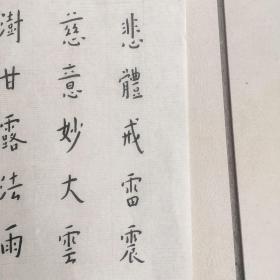 悲體戒雷震
慈意妙大雲
澍甘露法雨